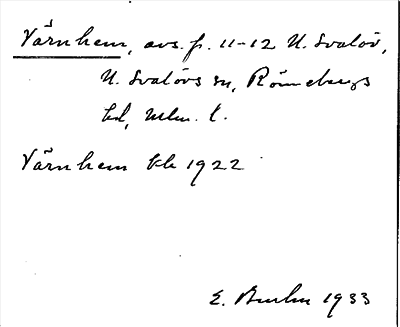 Värnhem, avs. fr. 11-12 N. Svalöv,
N. Svalövs sn, Rönnebergs
hd, Mlm. l.
Värnhem kbl 1922
E. 1933